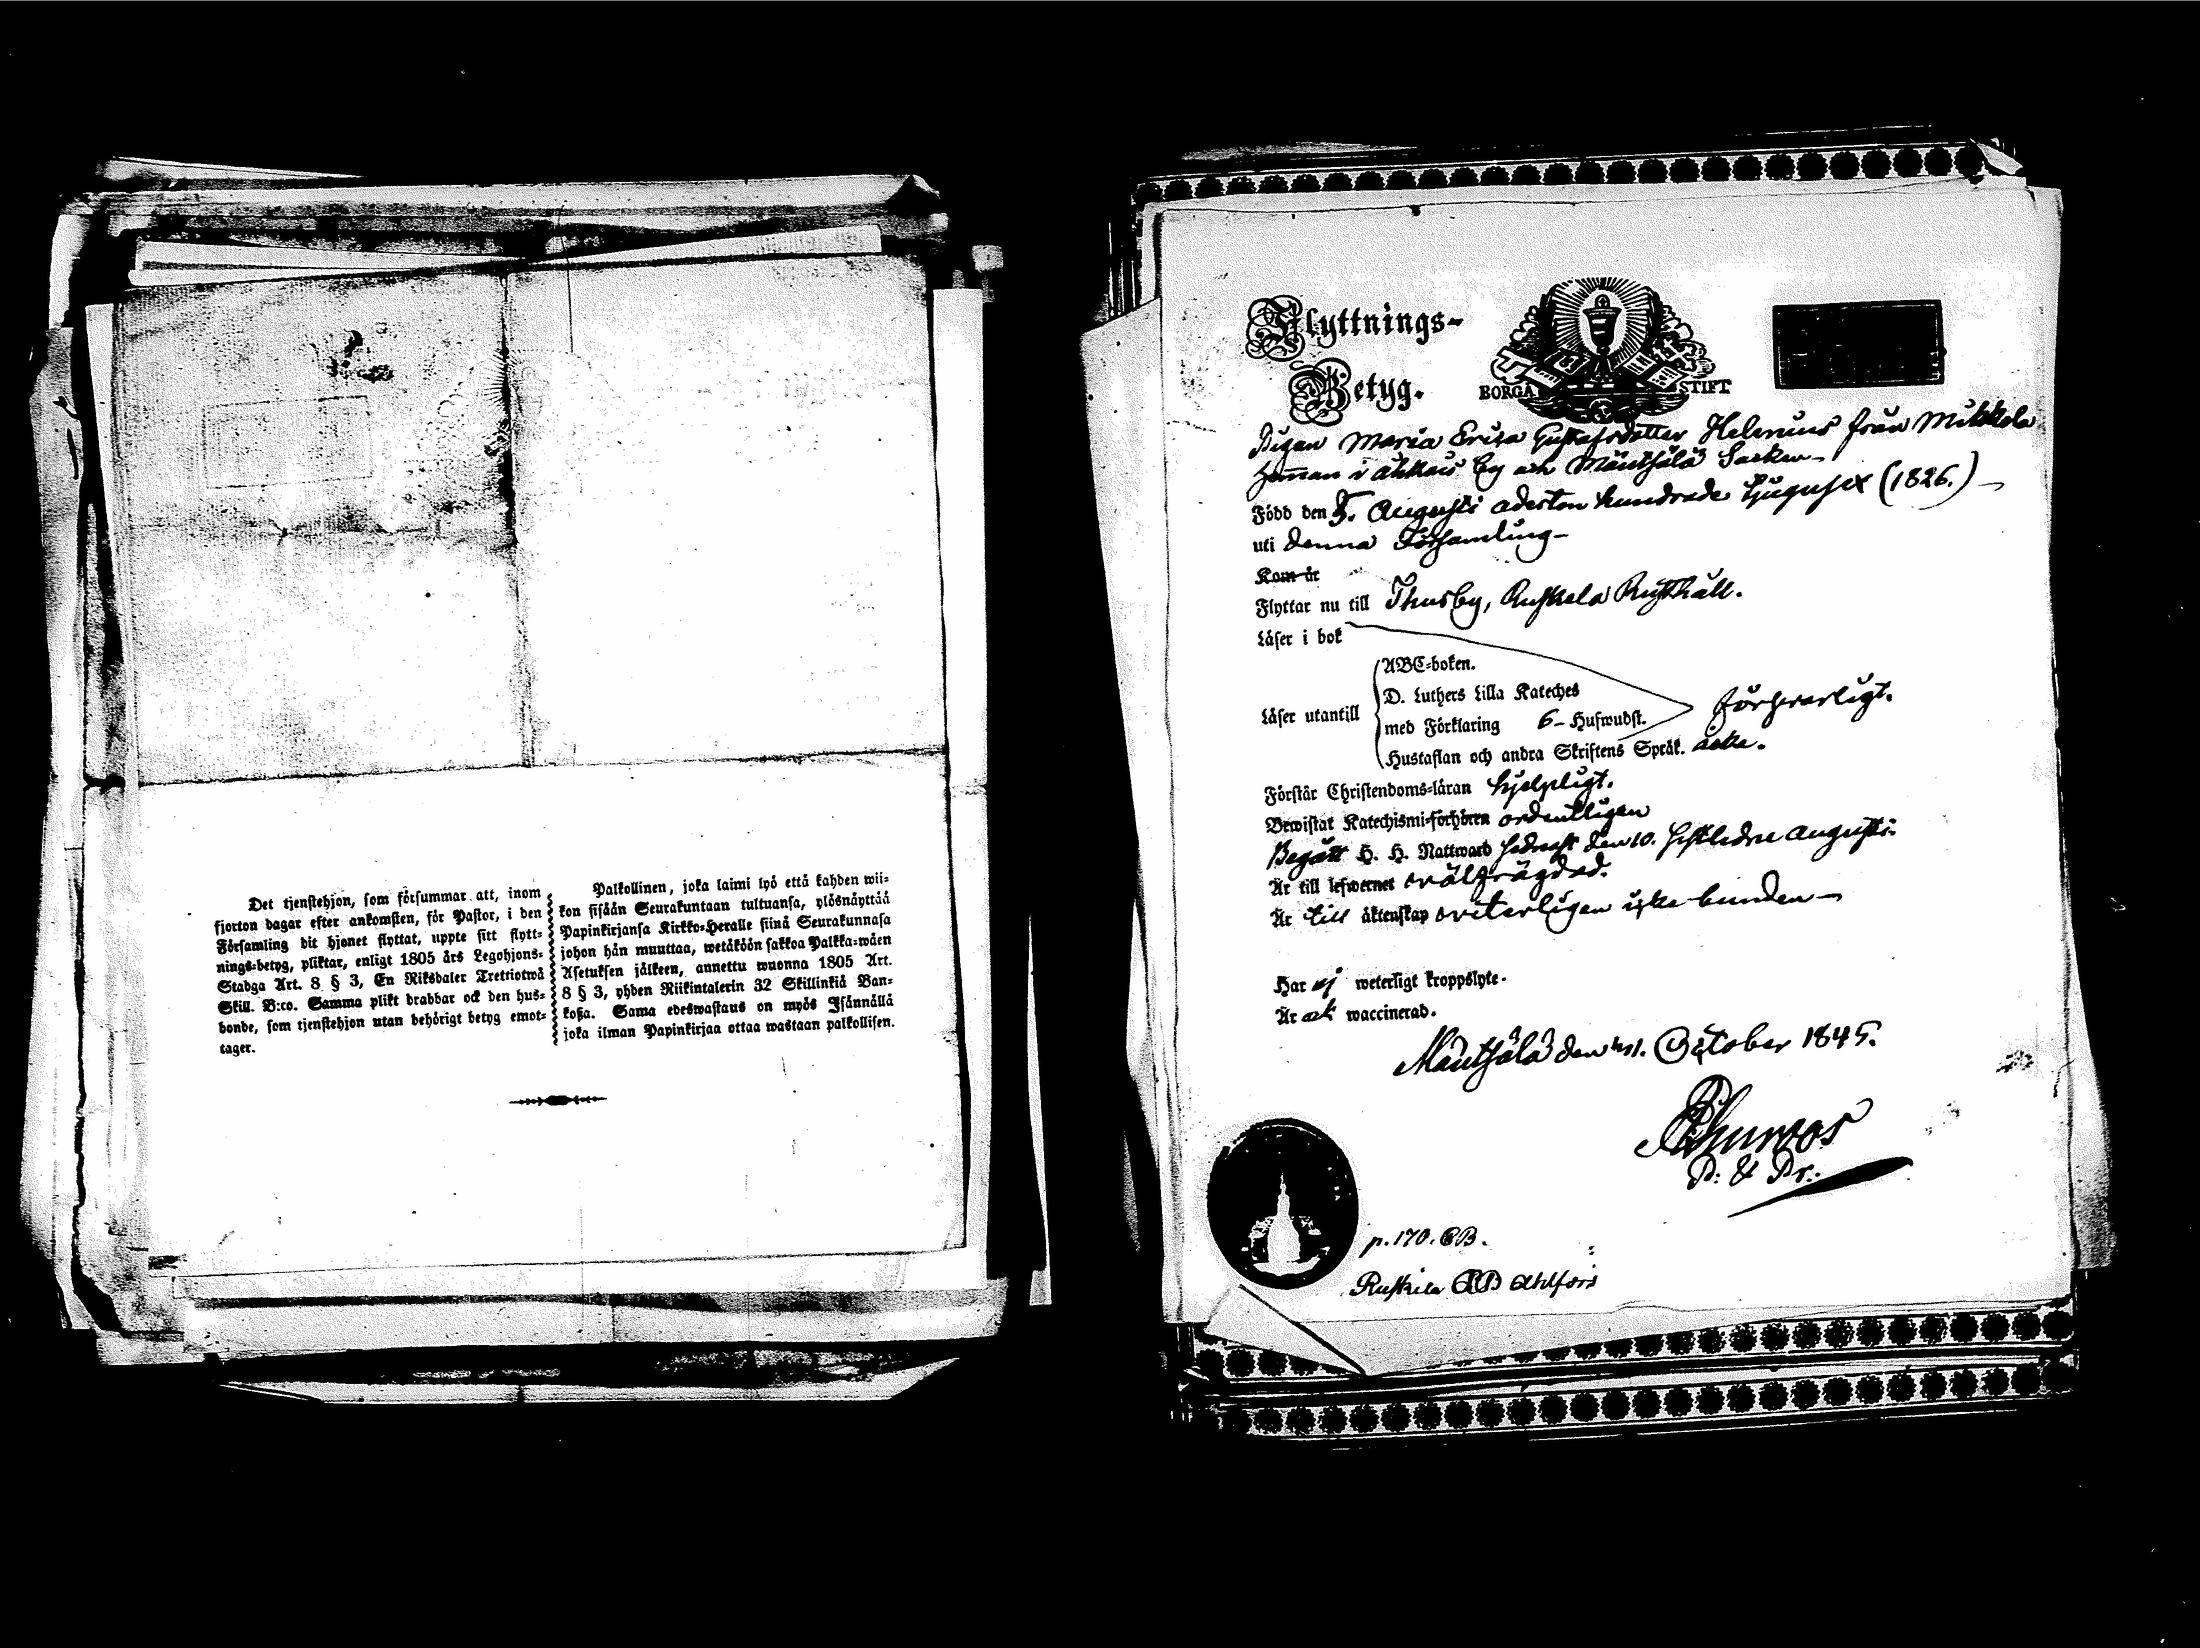 Det tjenstehjon, som försummar att, inom
fjorton dagar efter ankomsten, för Pastor, i den
Församling dit hjonet flyttat, uppte sitt flytt-
nings-betyg, pliktar, enligt 1805 års Legohjons-
Stadga Art. 8 § 3, En Riksdaler Trettiotwå
Skill. B:co. Samma plikt drabbar ock den hus-
bonde, som tjenstehjon utan behörigt betyg emot-
tager.
Palkollinen, joka laimi lyö että kahden wii-
kon sisään Seurakuntaan tultuansa, ylösnäyttää
Papinkirjansa Kirkko-Heralle siinä Seurakunnasa
johon hän muuttaa, wetäköön sakkoa Palkka-wäen
Asetuksen jälkeen, annettu wuonna 1805 Art.
8 § 3, yhden Riikintalerin 32 Skillinkiä Ban-
koßa. Sama edeswastaus on myös Isännällä
joka ilman Papinkirjaa ottaa wastaan palkollisen.
Flyttnings-
Betyg.
BORGÅ STIFT
Pigan Maria Erica Gustafsdotter Helenius från Mikkola
hemman i Åkkais by och Mäntsälä Socken
Född den 5. Augusti aderton hundrade tjugusex (1826.)
uti denna Församling
Kom år
Flyttar nu till Thusby, Ruskela Rusthåll.
Läser i bok
Läser utantill
ABC-boken.
D. Luthers Lilla Kateches
med Förklaring 6 Hufwudst.
Hustaflan och andra Skriftens Språk.
försvarligt.
Förstår Christendoms-läran hjelpligt.
Bewistat Katechismi-förhören ordentligen
Begått H. H. Nattward sednast den 10. sistledne Augusti.
Är till lefwernet wälfrägdad.
Är till äktenskap witerligen icke bunden
Har ej weterligt kroppslyte.
Är ock waccinerad.
Mäntsälä den October 1845.
P: & Pr:
p. 170. CB.